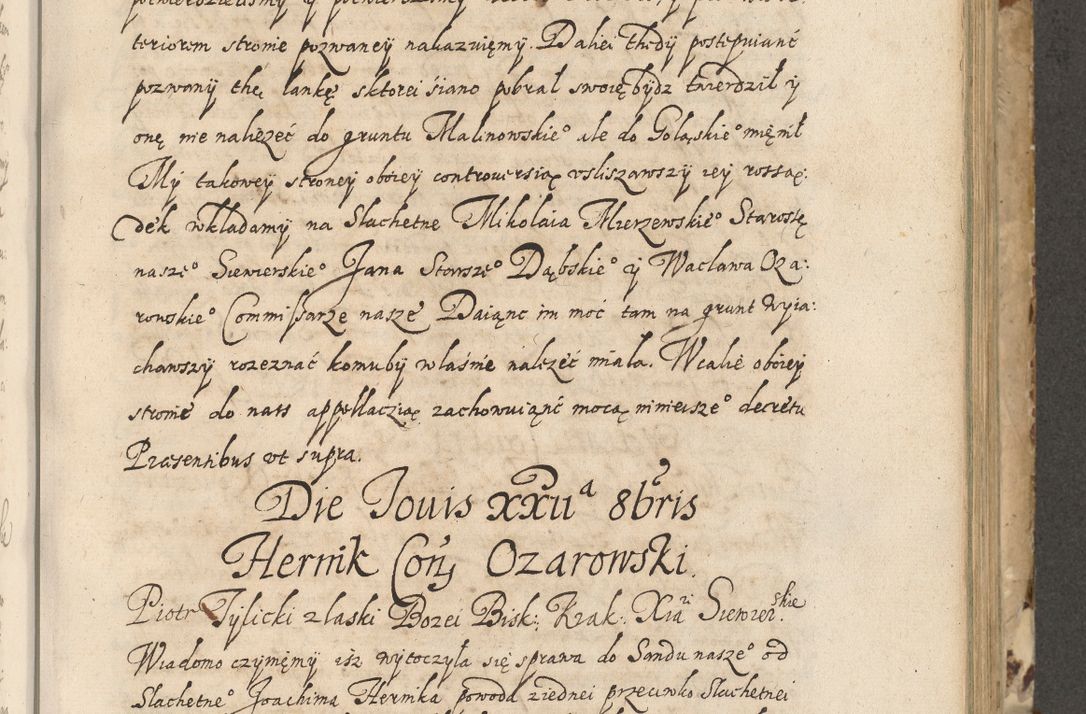 teriorem stronie pozwaney nakazuięmy. Daliei thedy postępuiąnć
pozwany thę łankę sktorei siano pobrał swoię bydz twierdził y
onę nie nalieżeć do gruntu Malinowskieº ale do Goląskieº mięnił
My takowey stroney oboiey controuersią vsliszawszy iey rossą:
dek wkładamy na Slachetne Mikolaia Mierzewskieº Starostę
naszeº Siewierskieº Jana Starszeº Dąbskieº y Wacława Oza:
rowskieº Commissarze nasze Daiąnc im moc tam na grunt Wyia:
chawszy rozeznać komuby właśnie należeć miała. Wcalie oboiey
stronie do nass appellaczią zachowuiąnć mocą ninieiszeº decretu
Præsentibus vt supra.
Die Iouis xxiiª 8bris
Hernik Coń Ozarowski.
Piotr Tylicki z laski Bozei Bisk: Krak: Xia Siewierskie
Wiadomo czynięmy isz wytoczyła się sprawa do Sandu naszeº od
Slachetneº Joachima Hernika powoda ziednei przeciwko Slachetnei